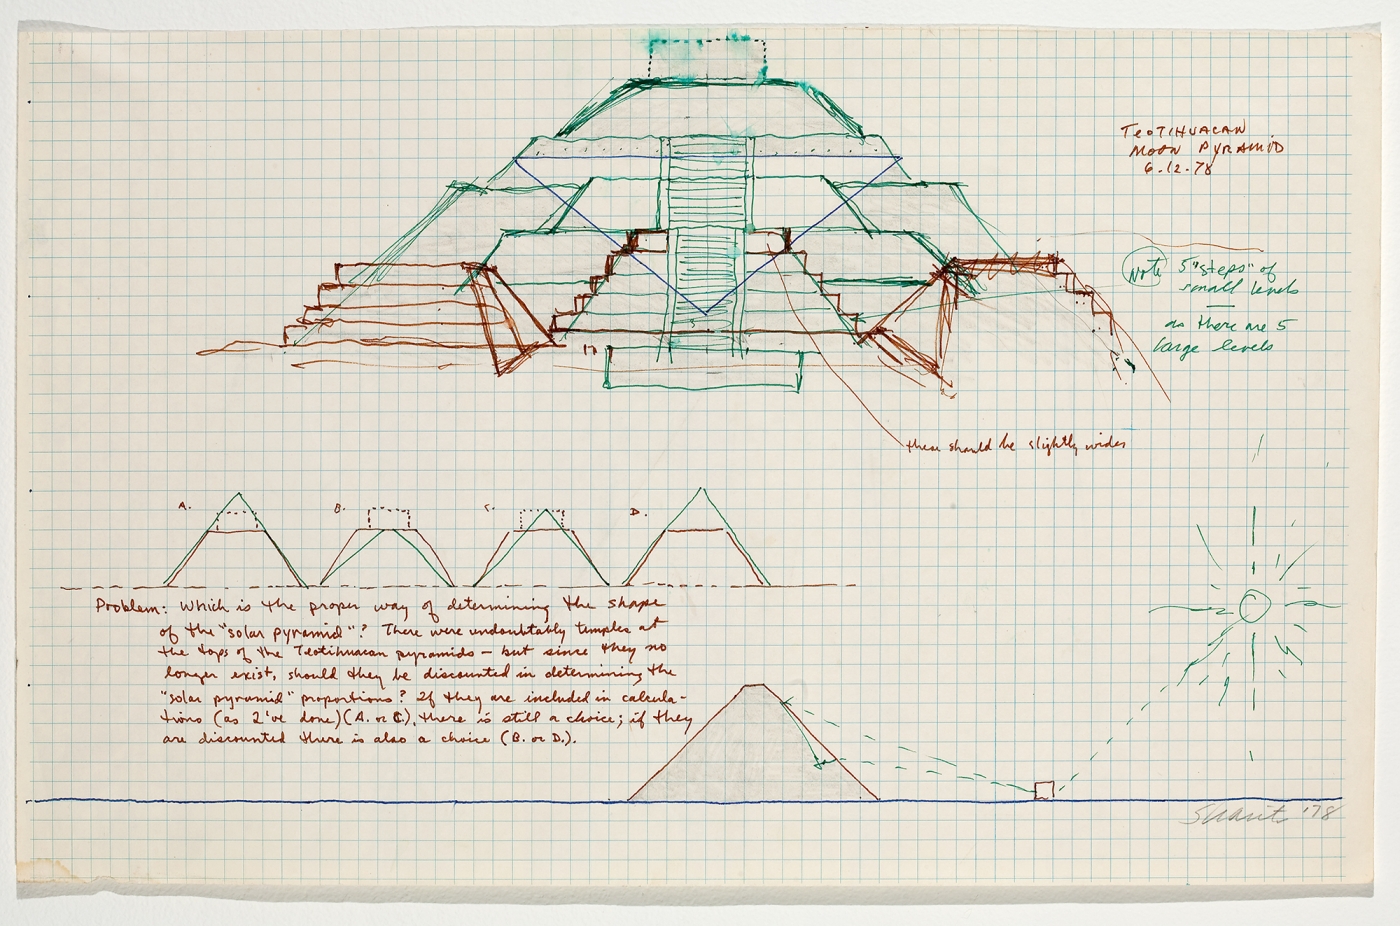 TEOTIHUACAN
MOON PYRAMID
6.12.78
Note 5 "steps" of
small levels
as there are 5
large levels
these should be slightly wider
A.
B.
C.
D.
Problem: Which is the proper way of determining the shape
of the "solar pyramid"? There were undoubtably temples at
the tops of the Teotihuacan pyramids – but since they no
longer exist, should they be discounted in determining the
"solar pyramid" proportions? If they are included in calcula-
tions (as I've done)(A. or C.), there is still a choice; if they
are discounted there is also a choice (B. or D.).
'78